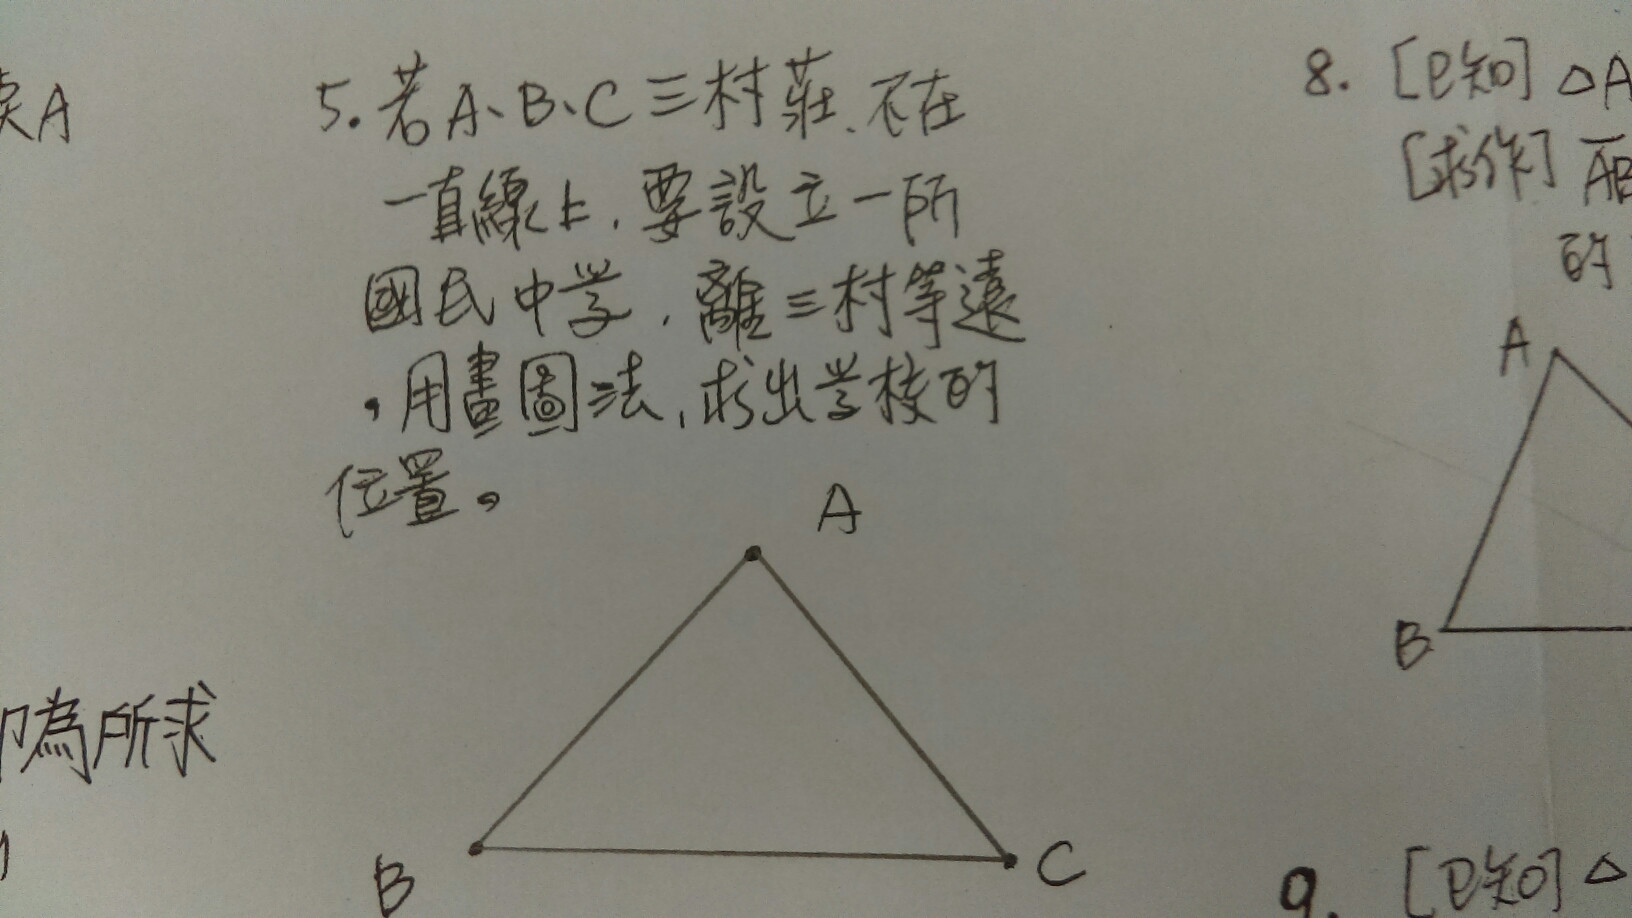 A
5. 若A、B、C三村莊、不在
一直線上,要設立一所
國民中学,離三村等遠
,用畫圖法,求出学校的
位置。
A
B
C
即為所求
8. [已知] △A
[求作] AB
的
A
B
9. [已知] △